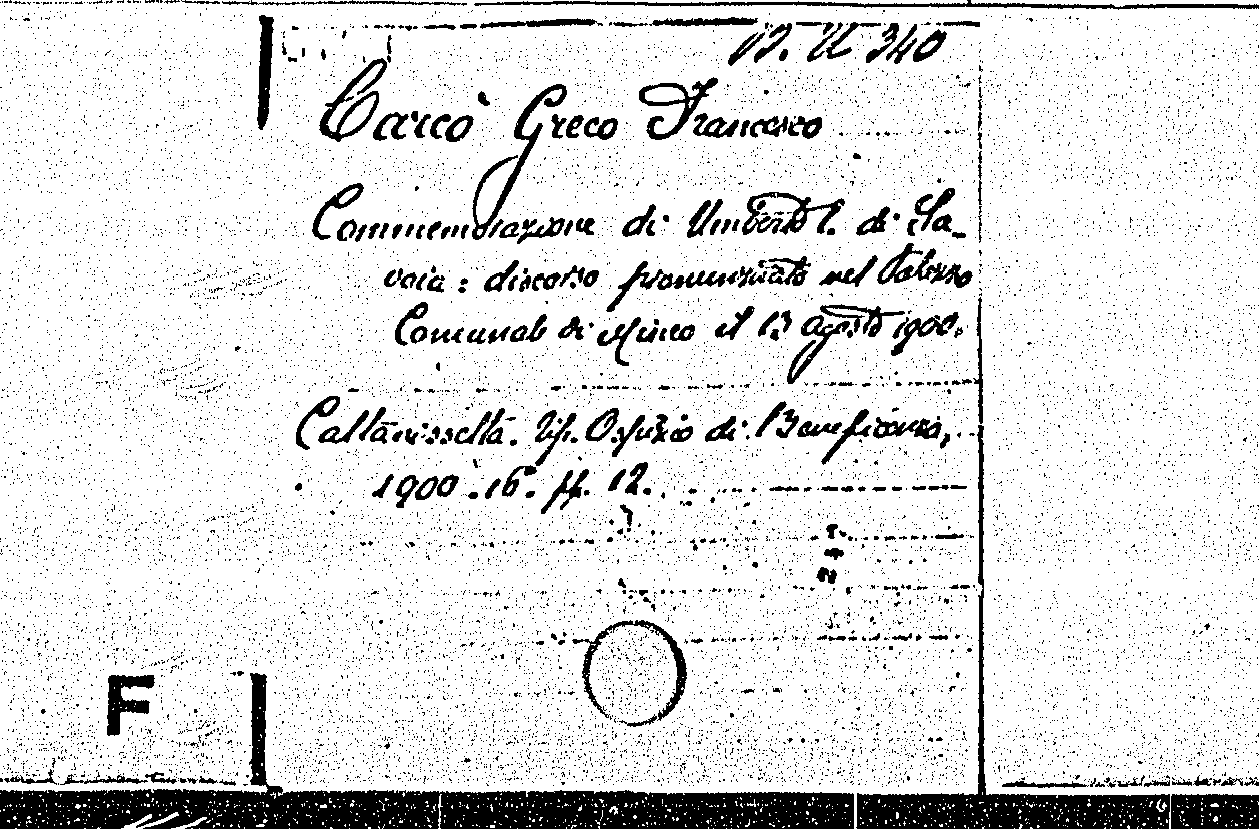 B. U 340
Carcò Greco Francesco
Commemorazione di Umberto I. di Sa-
voia: discorso pronunziato nel Palazzo
Comunale di Mineo il 13 agosto 1900.
Caltanissetta. Tip. Ospizio di Beneficenza,
1900. 16°. pp. 12.
F